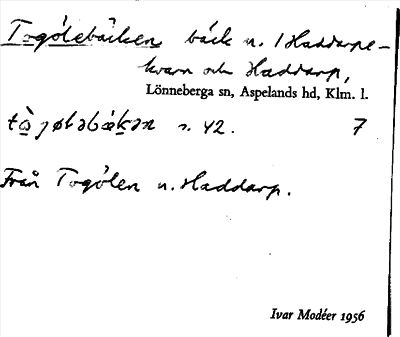 Togölebäcken bäck n. / Haddarpe-
kvarn och Haddarp,
Lönneberga sn, Aspelands hd, Klm. l.
s. 42. 7
Från Togölen n. Haddarp.
Ivar Modéer 1956